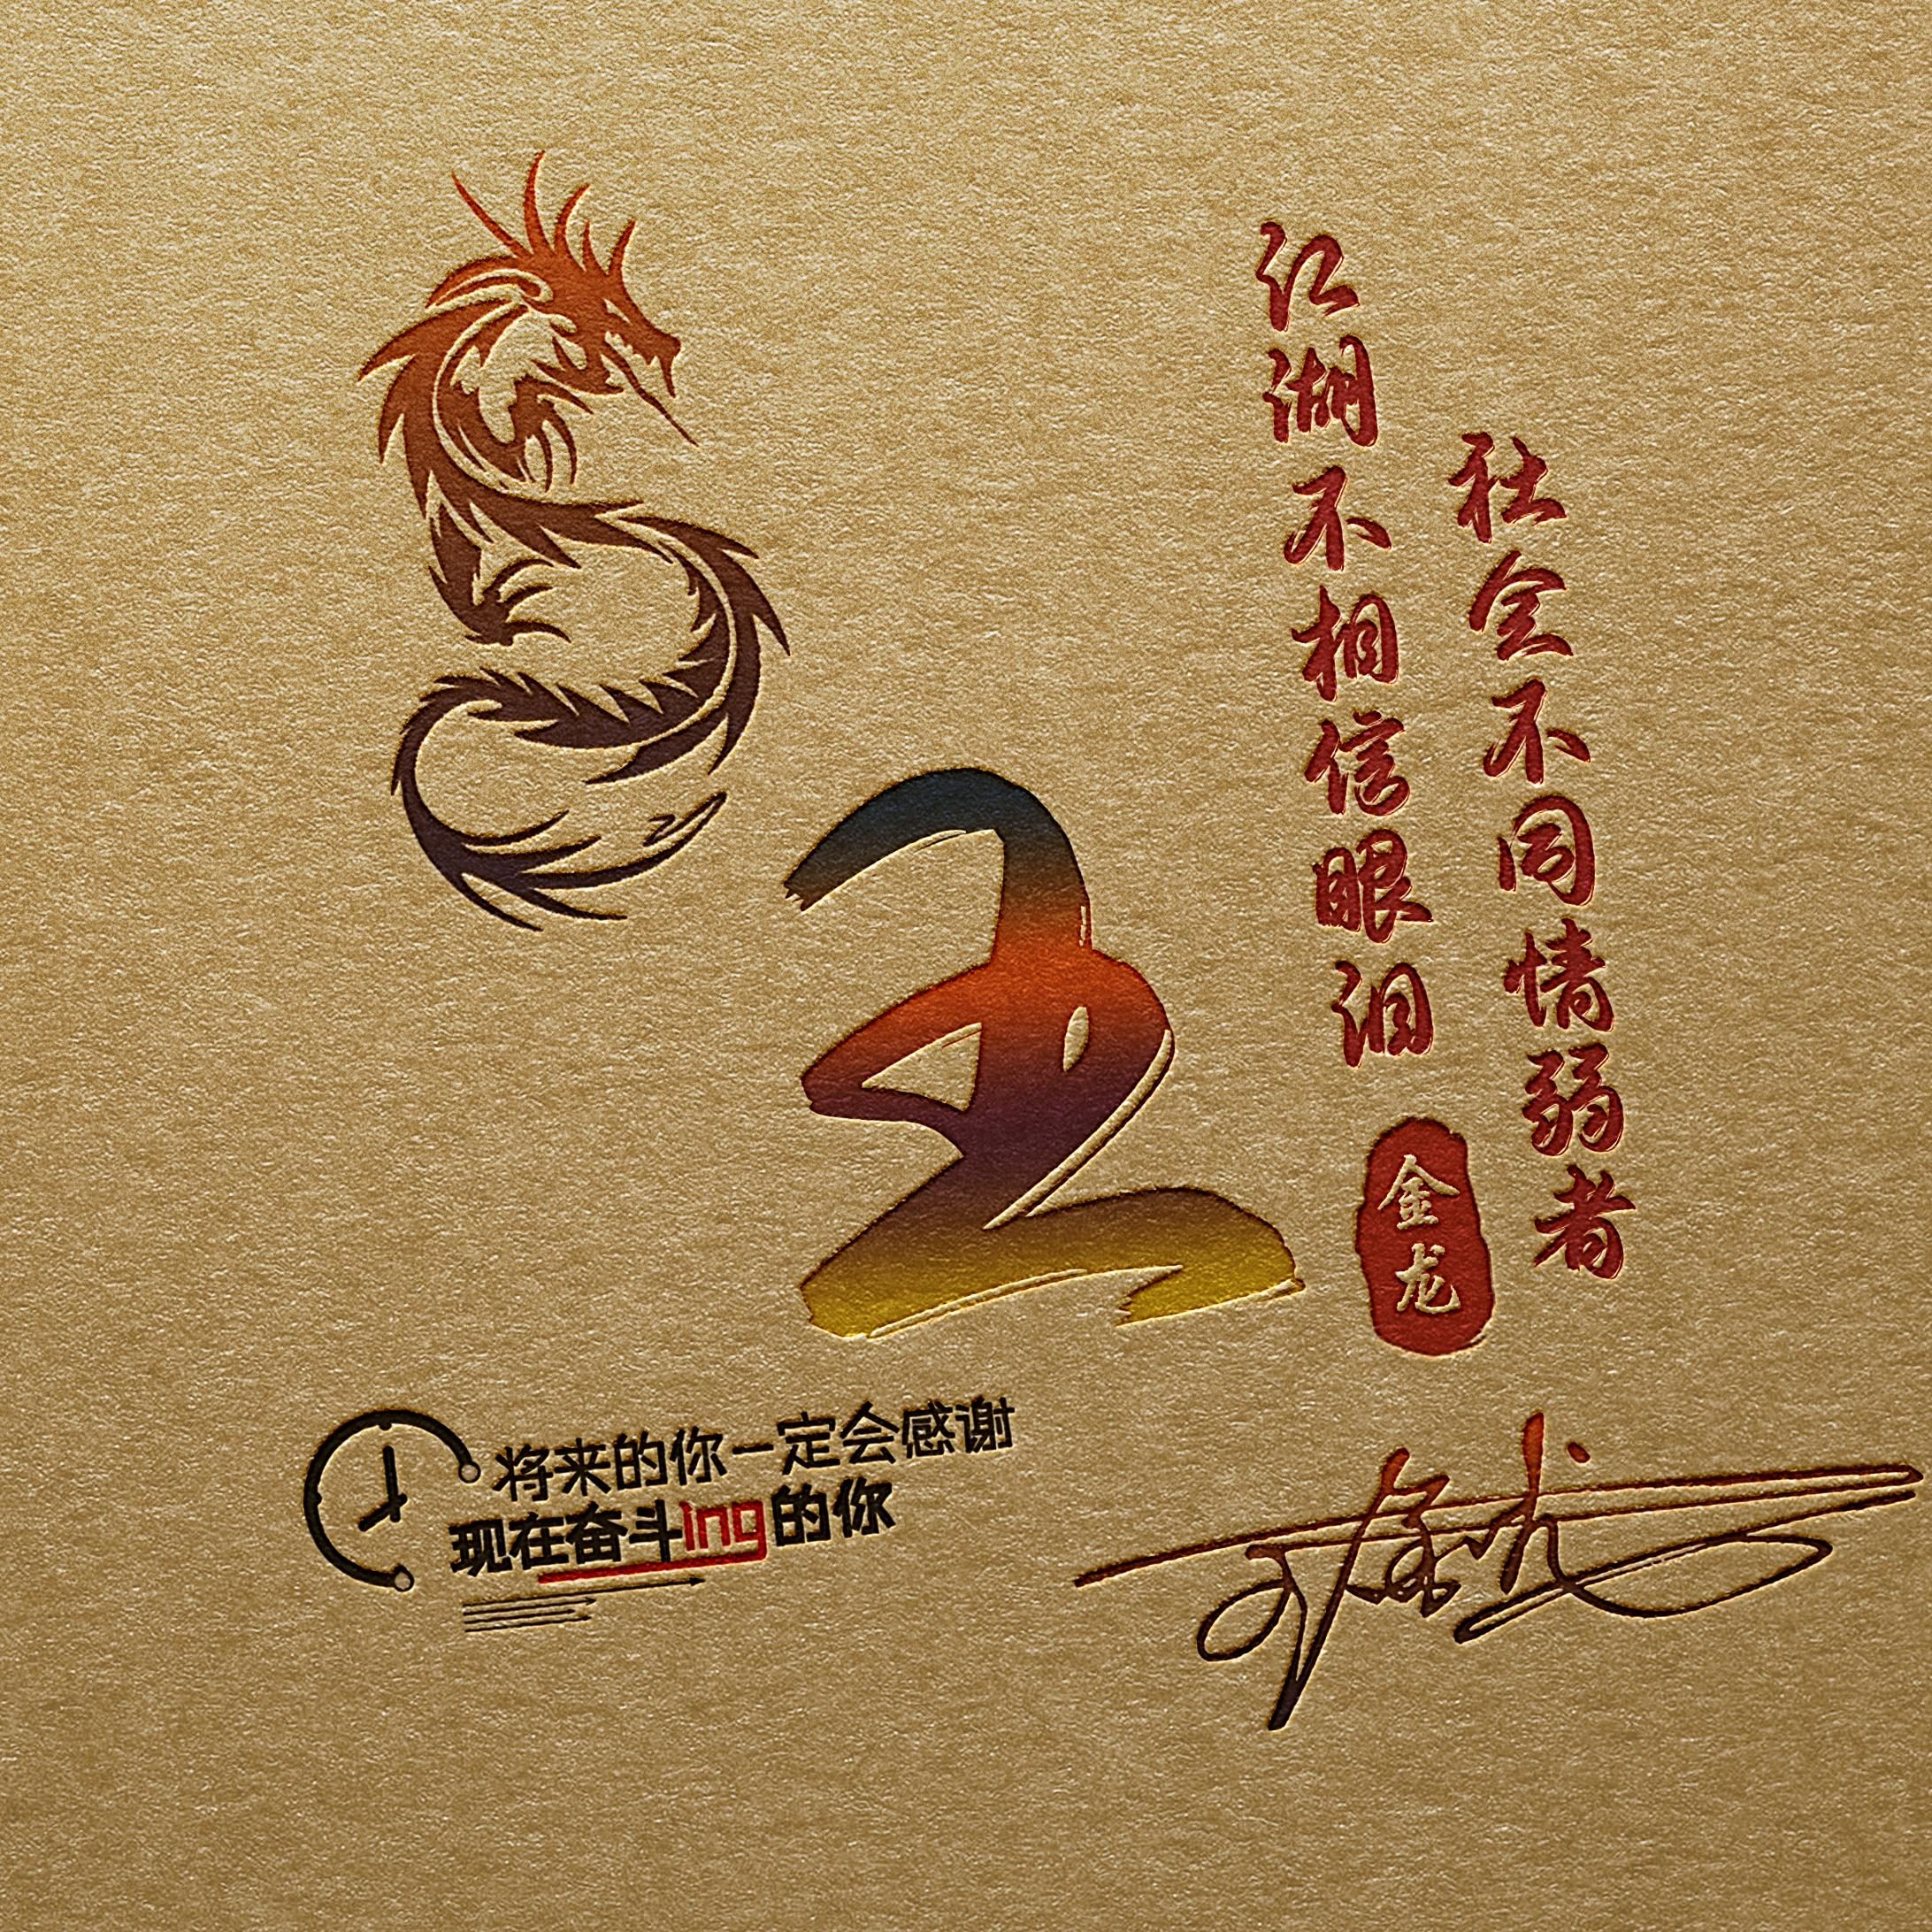 江湖不相信眼泪
社会不同情弱者
金龙
王
将来的你一定会感谢
现在奋斗ing的你